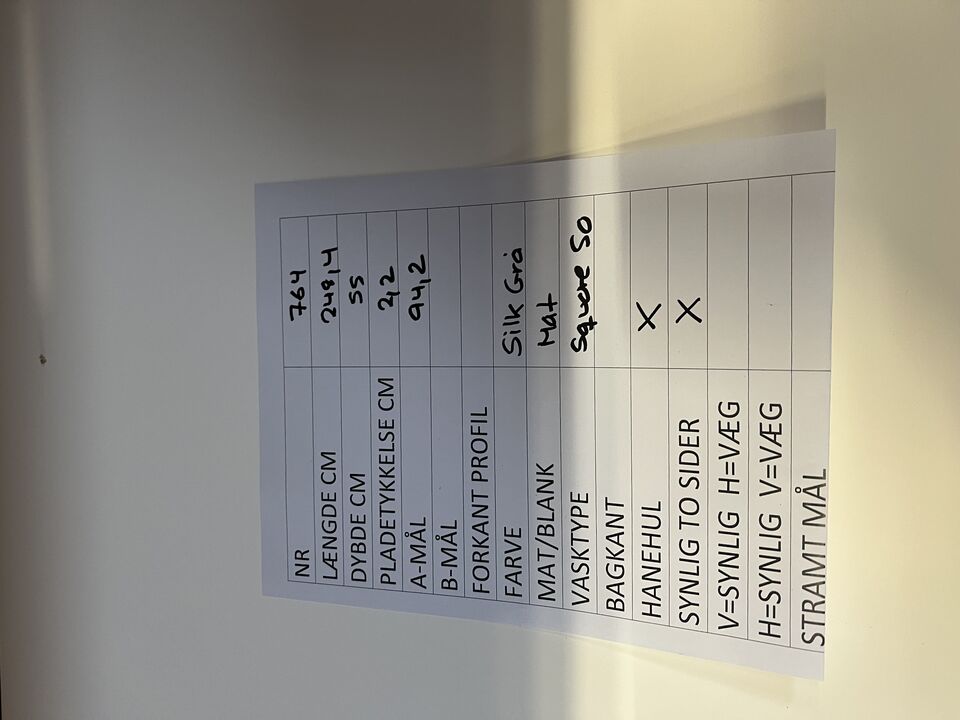 NR 764
LÆNGDE CM 248,4
DYBDE CM 55
PLADETYKKELSE CM 2,2
A-MÅL 94,2
B-MÅL
FORKANT PROFIL
FARVE Silk Grå
MAT/BLANK Mat
VASKTYPE Square 50
BAGKANT
HANEHUL X
SYNLIG TO SIDER X
V=SYNLIG H=VÆG
H=SYNLIG V=VÆG
STRAMT MÅL